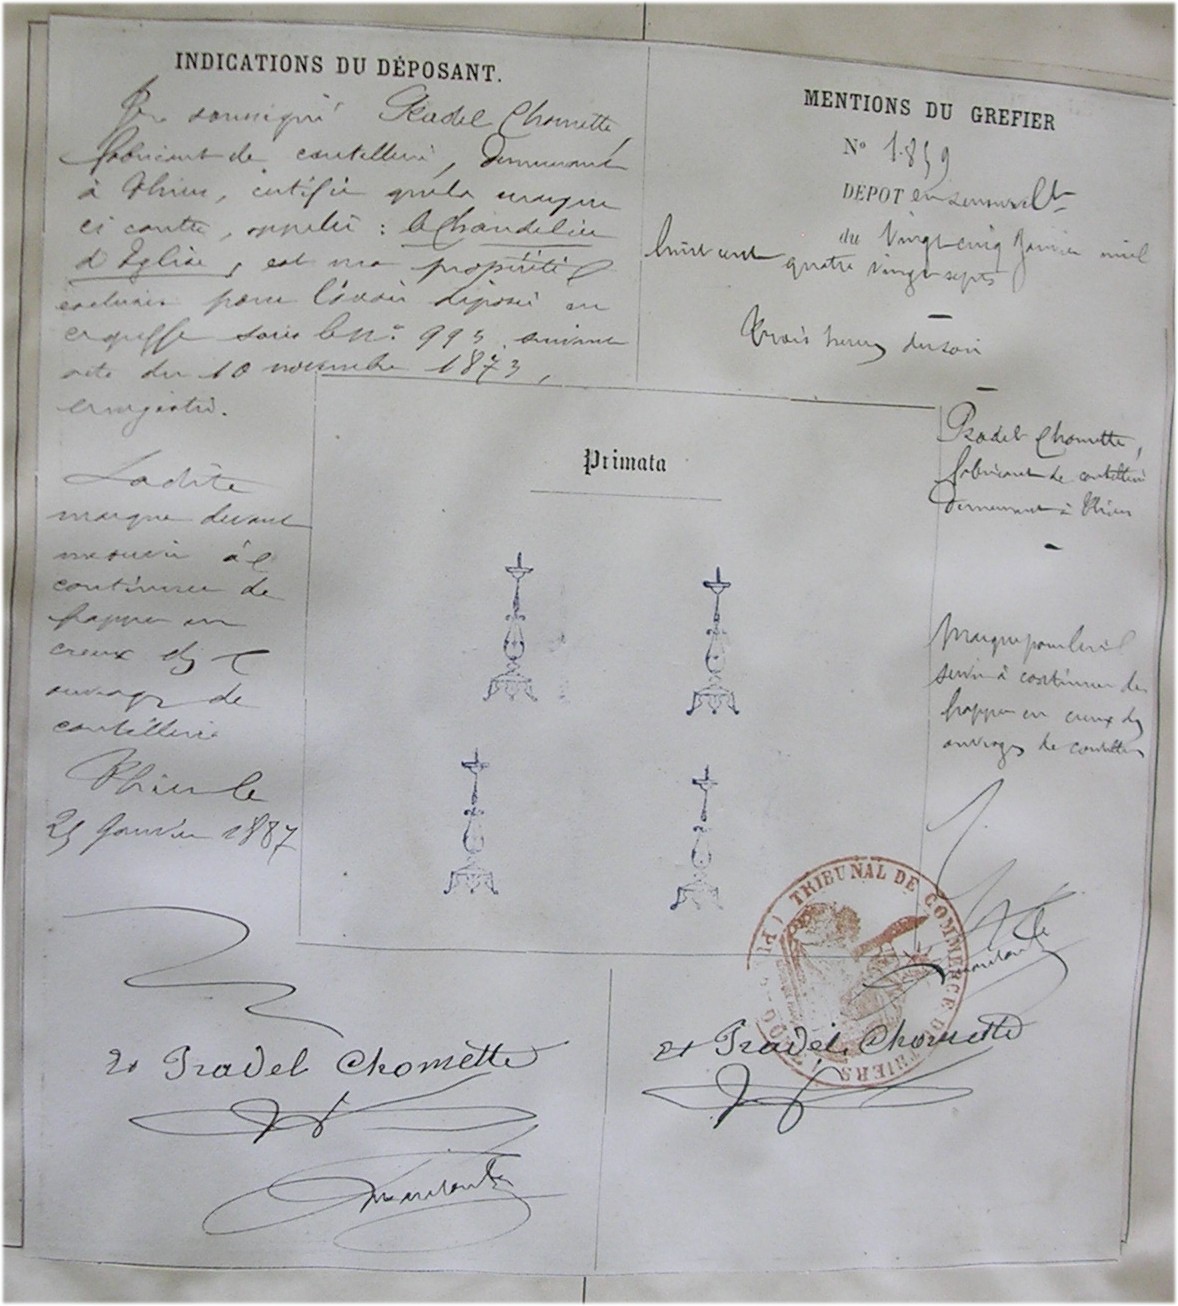 INDICATIONS DU DÉPOSANT.
Je soussigné Pradel Chomette,
fabricant de coutellerie, demeurant
à Thiers, certifie que la marque
ci contre, appelée : le Chandelier
d'Eglise, est ma propriété
exclusive pour l'avoir déposée au
greffe sous le N° 995 suivant
acte du 10 novembre 1873,
enregistré.
Ladite
marque devant
me servir à
continuer de
frapper en
creux des
ouvrages de
coutellerie
Thiers le
25 Janvier 1887
Pradel Chomette
MENTIONS DU GREFIER
N° 1859
DEPOT
du Vingt cinq Janvier mil
huit cent quatre vingt septs
Trois heures du soir
Pradel Chomette,
fabricant de coutellerie
demeurant à Thiers
Marque pour lui
servir à continuer de
frapper en creux des
ouvrages de coutellerie
Primata
TRIBUNAL DE COMMERCE DE THIERS
Pradel Chomette